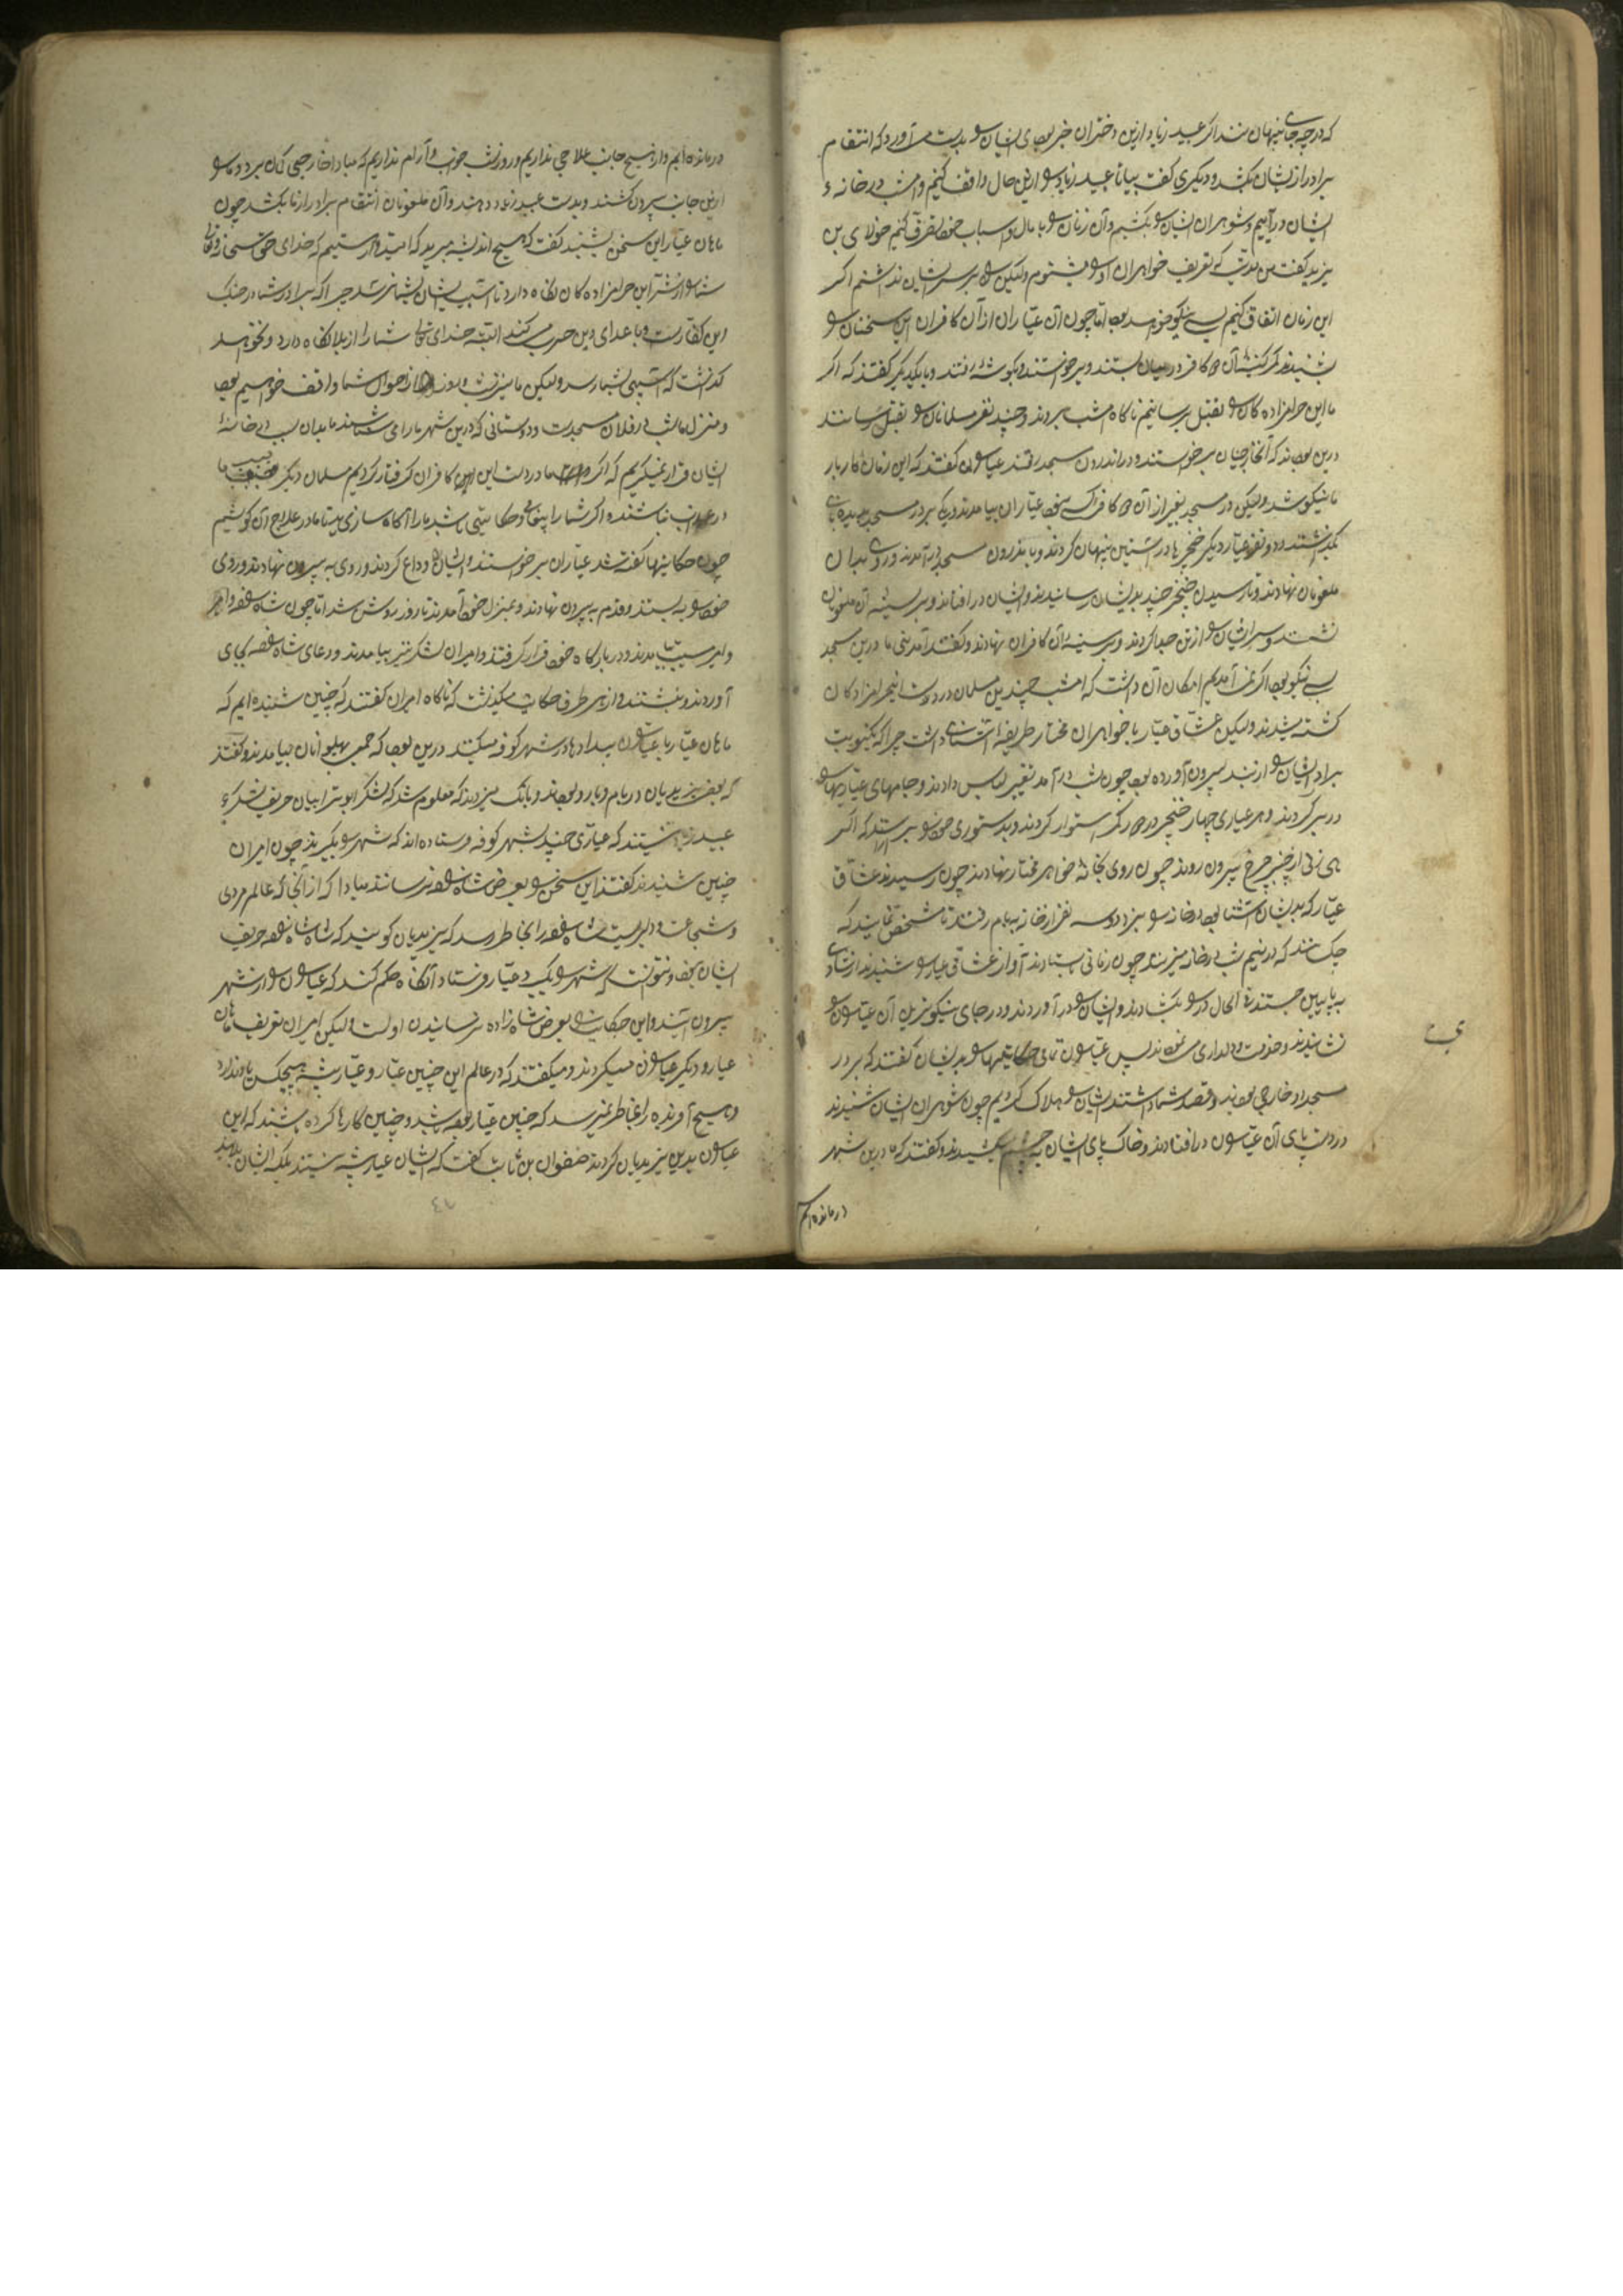 که در چه جای پنهانند اگر عبید زیاد ازین دختران خبر بودی ایشان را بدست می آورد که انتقام
برادر از ایشان بکشد و دیگری گفت بیا تا عبید زیاد را ازین حال واقف کنیم و امشب در خانهٔ
ایشان درآییم و شوهران ایشان را بکشیم و آن زنان را با مال و اسباب خود تصرف کنیم خولای بن
یزید گفت من مدتیست که تعریف خواهران او را بشنودم ولیکن راه بر سر ایشان نداشتم اگر
این زمان اتفاق کنیم بسی نیکو خواهد بود اما چون آن عیاران از آن کافران این سخنان را
بشنیدند کمر کینهٔ آن کافر در میان بستند و برخواستند و بگوشهٔ رفتند و با یکدیگر گفتند که اگر
ما این حرامزاده کان را بقتل نرسانیم ناکاه امشب بروند و چند نفر مسلمانان را بقتل رسانند
درین بودند که آن خارجیان برخواستند و در اندرون مسجد رفتند عیاران گفتند که این زمان کار بار
ما نیکو شد ولیکن در مسجد بغیر از آن کافر کسی نبود عیاران بیامدند و یکی بر در مسجد بدیده بانی
بگذاشتند و دو نفر عیار دیگر خنجرها در آستین پنهان کردند و باندرون مسجد درآمدند و روی بدان
ملعونان نهادند و تا رسیدن خنجر چند بدیشان رسانیدند و ایشان در افتادند و بر سینهٔ آن ملعونان
نشستند و سر ایشان را از تن جدا کردند و بر سینهٔ آن کافران نهادند و گفتند آمدنی ما درین مسجد
بسی نیکو بود اگر نمی آمدیم امکان آن داشت که امشب چندین مسلمان در دست این حرامزادکان
کشته میشدند ولیکن عشاق عیار با خواهران مختار طریقه آشنائی داشت چرا که یک نوبت
برادر ایشان را از بند بیرون آورده بود چون شب درآمد تغییر لباس دادند و جامهای عیارانه را
در بر کردند و هر عیاری چهار خنجر در کمر استوار کردند و بدستوری خود را برآراستند که اگر
های زنی از خنبر چرخ بیرون روند چون روی بخانهٔ خواهر مختار نهادند چون رسیدند عشاق
عیار که بدیشان آشنا بود در خانه را بزد و سه نفر از خانه به بام رفتند تا مشخص نمایند که
چه کسند که در نیم شب در خانه میزنند چون زمانی بایستادند آواز عشاق عیار را شنیدند از شادی
به پایین جستند فی الحال در را بگشادند و ایشان را درآوردند و در جای نیکو بنزیل آن عیاران را
نشانیدند و خدمت و دلداری می نمودند پس عیاران تمامی حکایتها را بدیشان گفتند که بر در
مسجد دو خارجی بودند و قصد شما داشتند ایشان را هلاک کردیم چون شوهران ایشان شنیدند
در دست پای آن عیاران در افتادند و خاک پای ایشان به چشم کشیدند و گفتند که ما درین شهر
درمانده ایم
درمانده ایم و از هیچ جانب علاجی نداریم و روز شب خواب و آرام نداریم که مبادا خارجی کمان برد و ما را
ازین جانب بیرون کشند و بدست عبید زیاد دهند و آن ملعونان انتقام برادر از ما بکشد چون
ماهان عیار این سخن بشنید گفت که هیچ اندیشه مبرید که امیدوار هستیم که خدای حق سبحانه و تعالی
شما را از شر این حرامزاده کان نکاه دارد تا آسیب ایشان بشما نرسد چرا که برادر شما در جنک
این کفارست و با اعدای دین حرب میکند البته خدای تعالی شما را از بلا نکاه دارد و نخواهد
گذاشت که آسیبی بشما رسد ولیکن ما نیز شب و روز از احوال شما واقف خواهیم بود
و منزل ما شب در فلان مسجدست و دوستانی که درین شهر ما را می شناسند ما بدان سبب در خانهٔ
ایشان قرار نمیگیریم که اگر ما در دست این کافران گرفتار گردیم مسلمان دیگر بسبب ما
در عذاب نباشند و اگر شما را پیغامی و حکایتی باشد ما را آگاه سازی بدیت تا ما در علاج آن کوشیم
چون حکایتها گفته شد عیاران برخواستند و ایشان را وداع کردند و روی به بیرون نهادند و روی
خود را به بستند و قدم به بیرون نهادند و بمنزل خود آمدند تا روز روشن شد اما چون شاه
و امیر مسیب بیامدند و در بارگاه خود قرار گرفتند و امیران لشکر نیز بیامدند و دعای شاه بجای
آوردند و بنشستند و از هر طرف حکایت میگذشت که ناکاه امیران گفتند که چنین شنیده ایم که
ماهان عیار با عیاران بیدادها در شهر کوفه میکنند درین بود که جمعی پهلوانان بیامدند و گفتند
که بعضی یزیدیان در بام و بارو بودند و بانک میزدند که معلوم شد که لشکر ابوترابیان حریف لشکر
عبید زیاد نیستند که عیاری چند بشهر کوفه فرستاده اند که شهر را بگیرند چون امیران
چنین شنیدند گفتند این سخن را بعرض شاه نرسانند مبادا که از آنجا که عالم مردی
و شجاعت و دلیریست شاه را بخاطر رسد که یزیدیان گویند که شاه حریف
ایشان نبود و نتوانست که شهر را بگیرد عیار فرستاد آنکاه حکم کند که عیاران را از شهر
بیرون آیند و این حکایت را بعرض شاه زاده نرسانیدن اولیست ولیکن امیران تعریف ماهان
عیار و دیگر عیاران میکردند و میگفتند که در عالم این چنین عیار و عیار پیشه هیچکس یاد ندارد
و هیچ آفریده را بخاطر نمیرسد که چنین عیار بوده باشد و چنین کارها کرده باشند که این
عیاران بدین یزیدیان کردند صفوان بن ثابت گفت که ایشان عیار پیشه نیستند بلکه ایشان